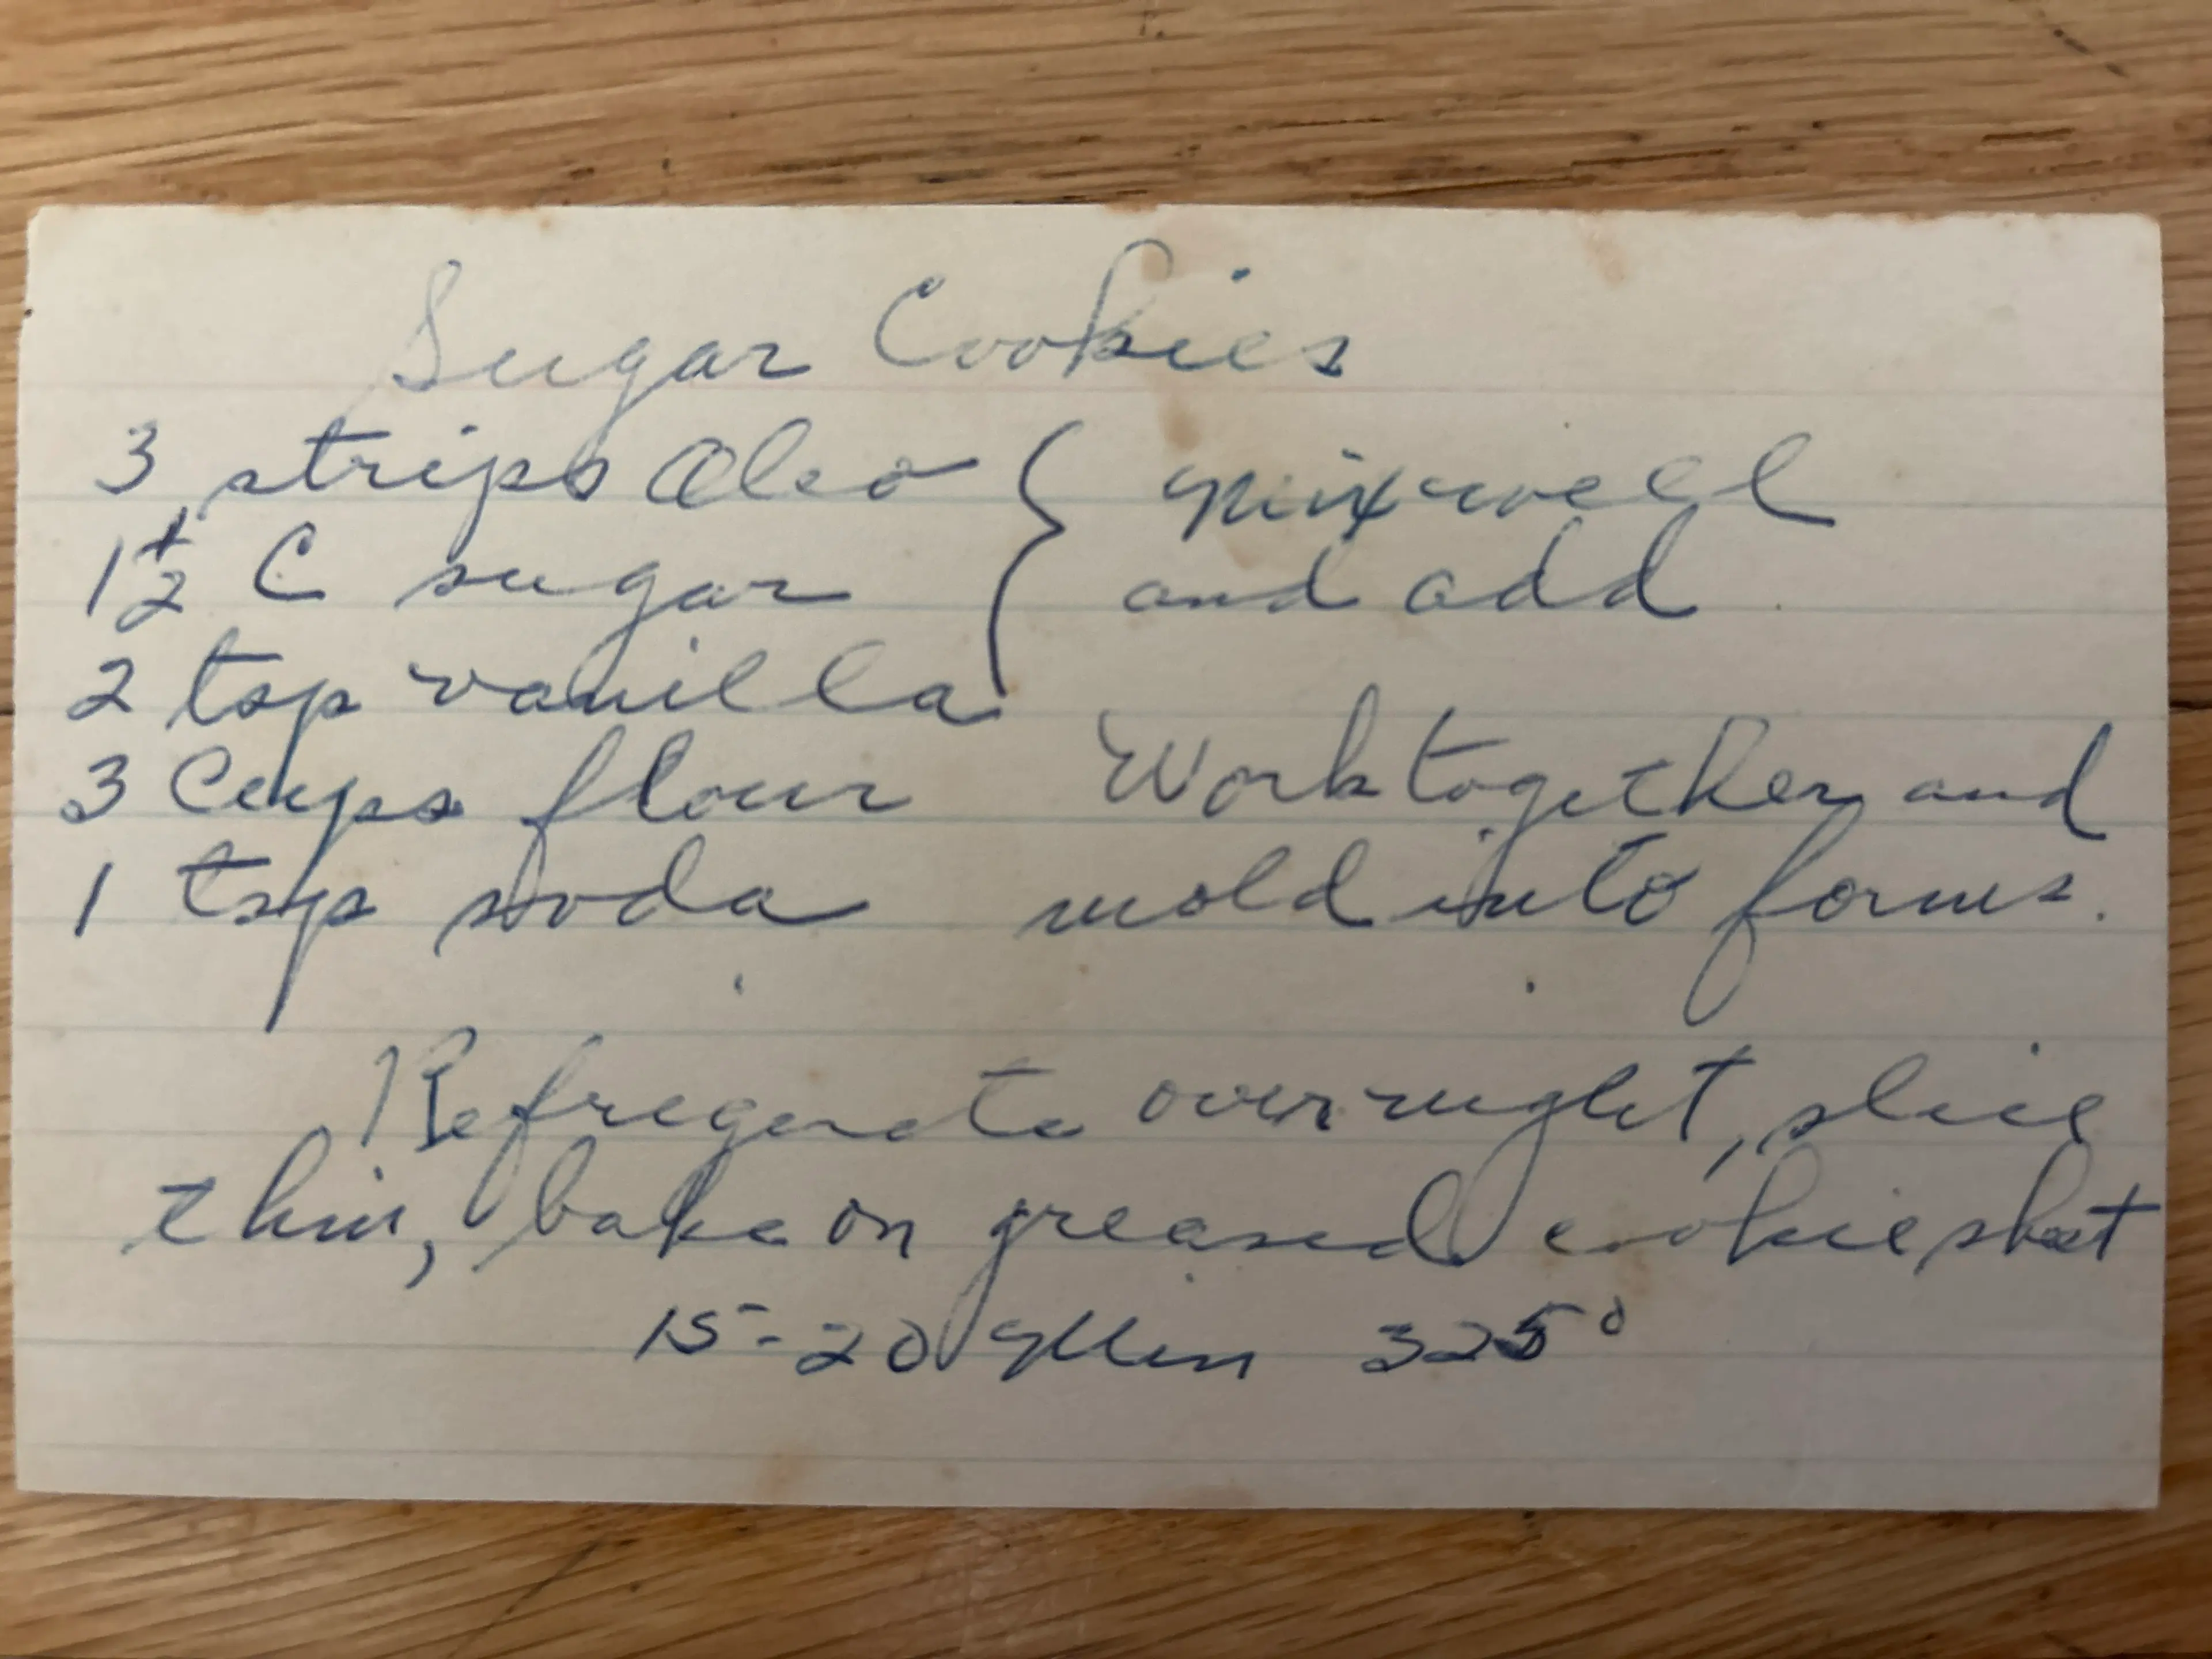 Sugar Cookies
3 strips Oleo { Mix well
1 1/2 C sugar and add
2 tsp vanilla
3 Cups flour Work together and
1 tsp soda mold into forms.
Refregerate overnight, slice
thin, bake on greased cookie sheet
15-20 Min 325°